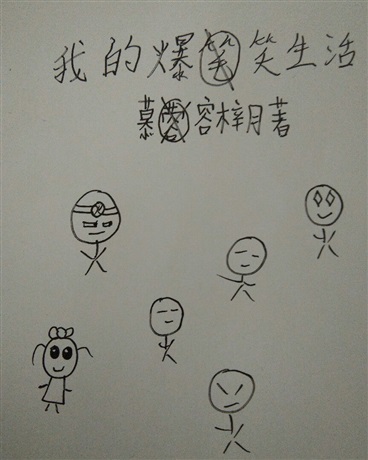 我的爆笑生活
慕容梓月著